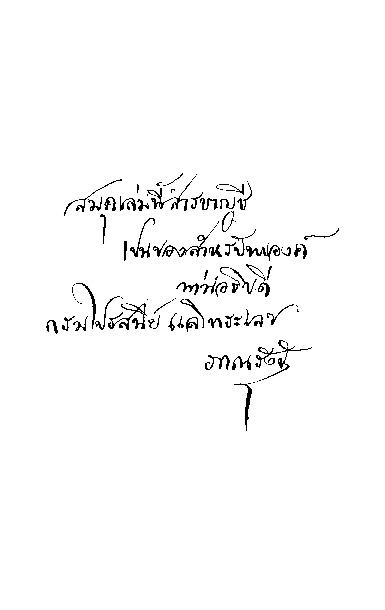 สมุดเล่มนี้ สารบาญชี
เปนของสำหรับพแองค์
ท่านอธิบดี
กรมไปรสนีย์ แลโทรเลข